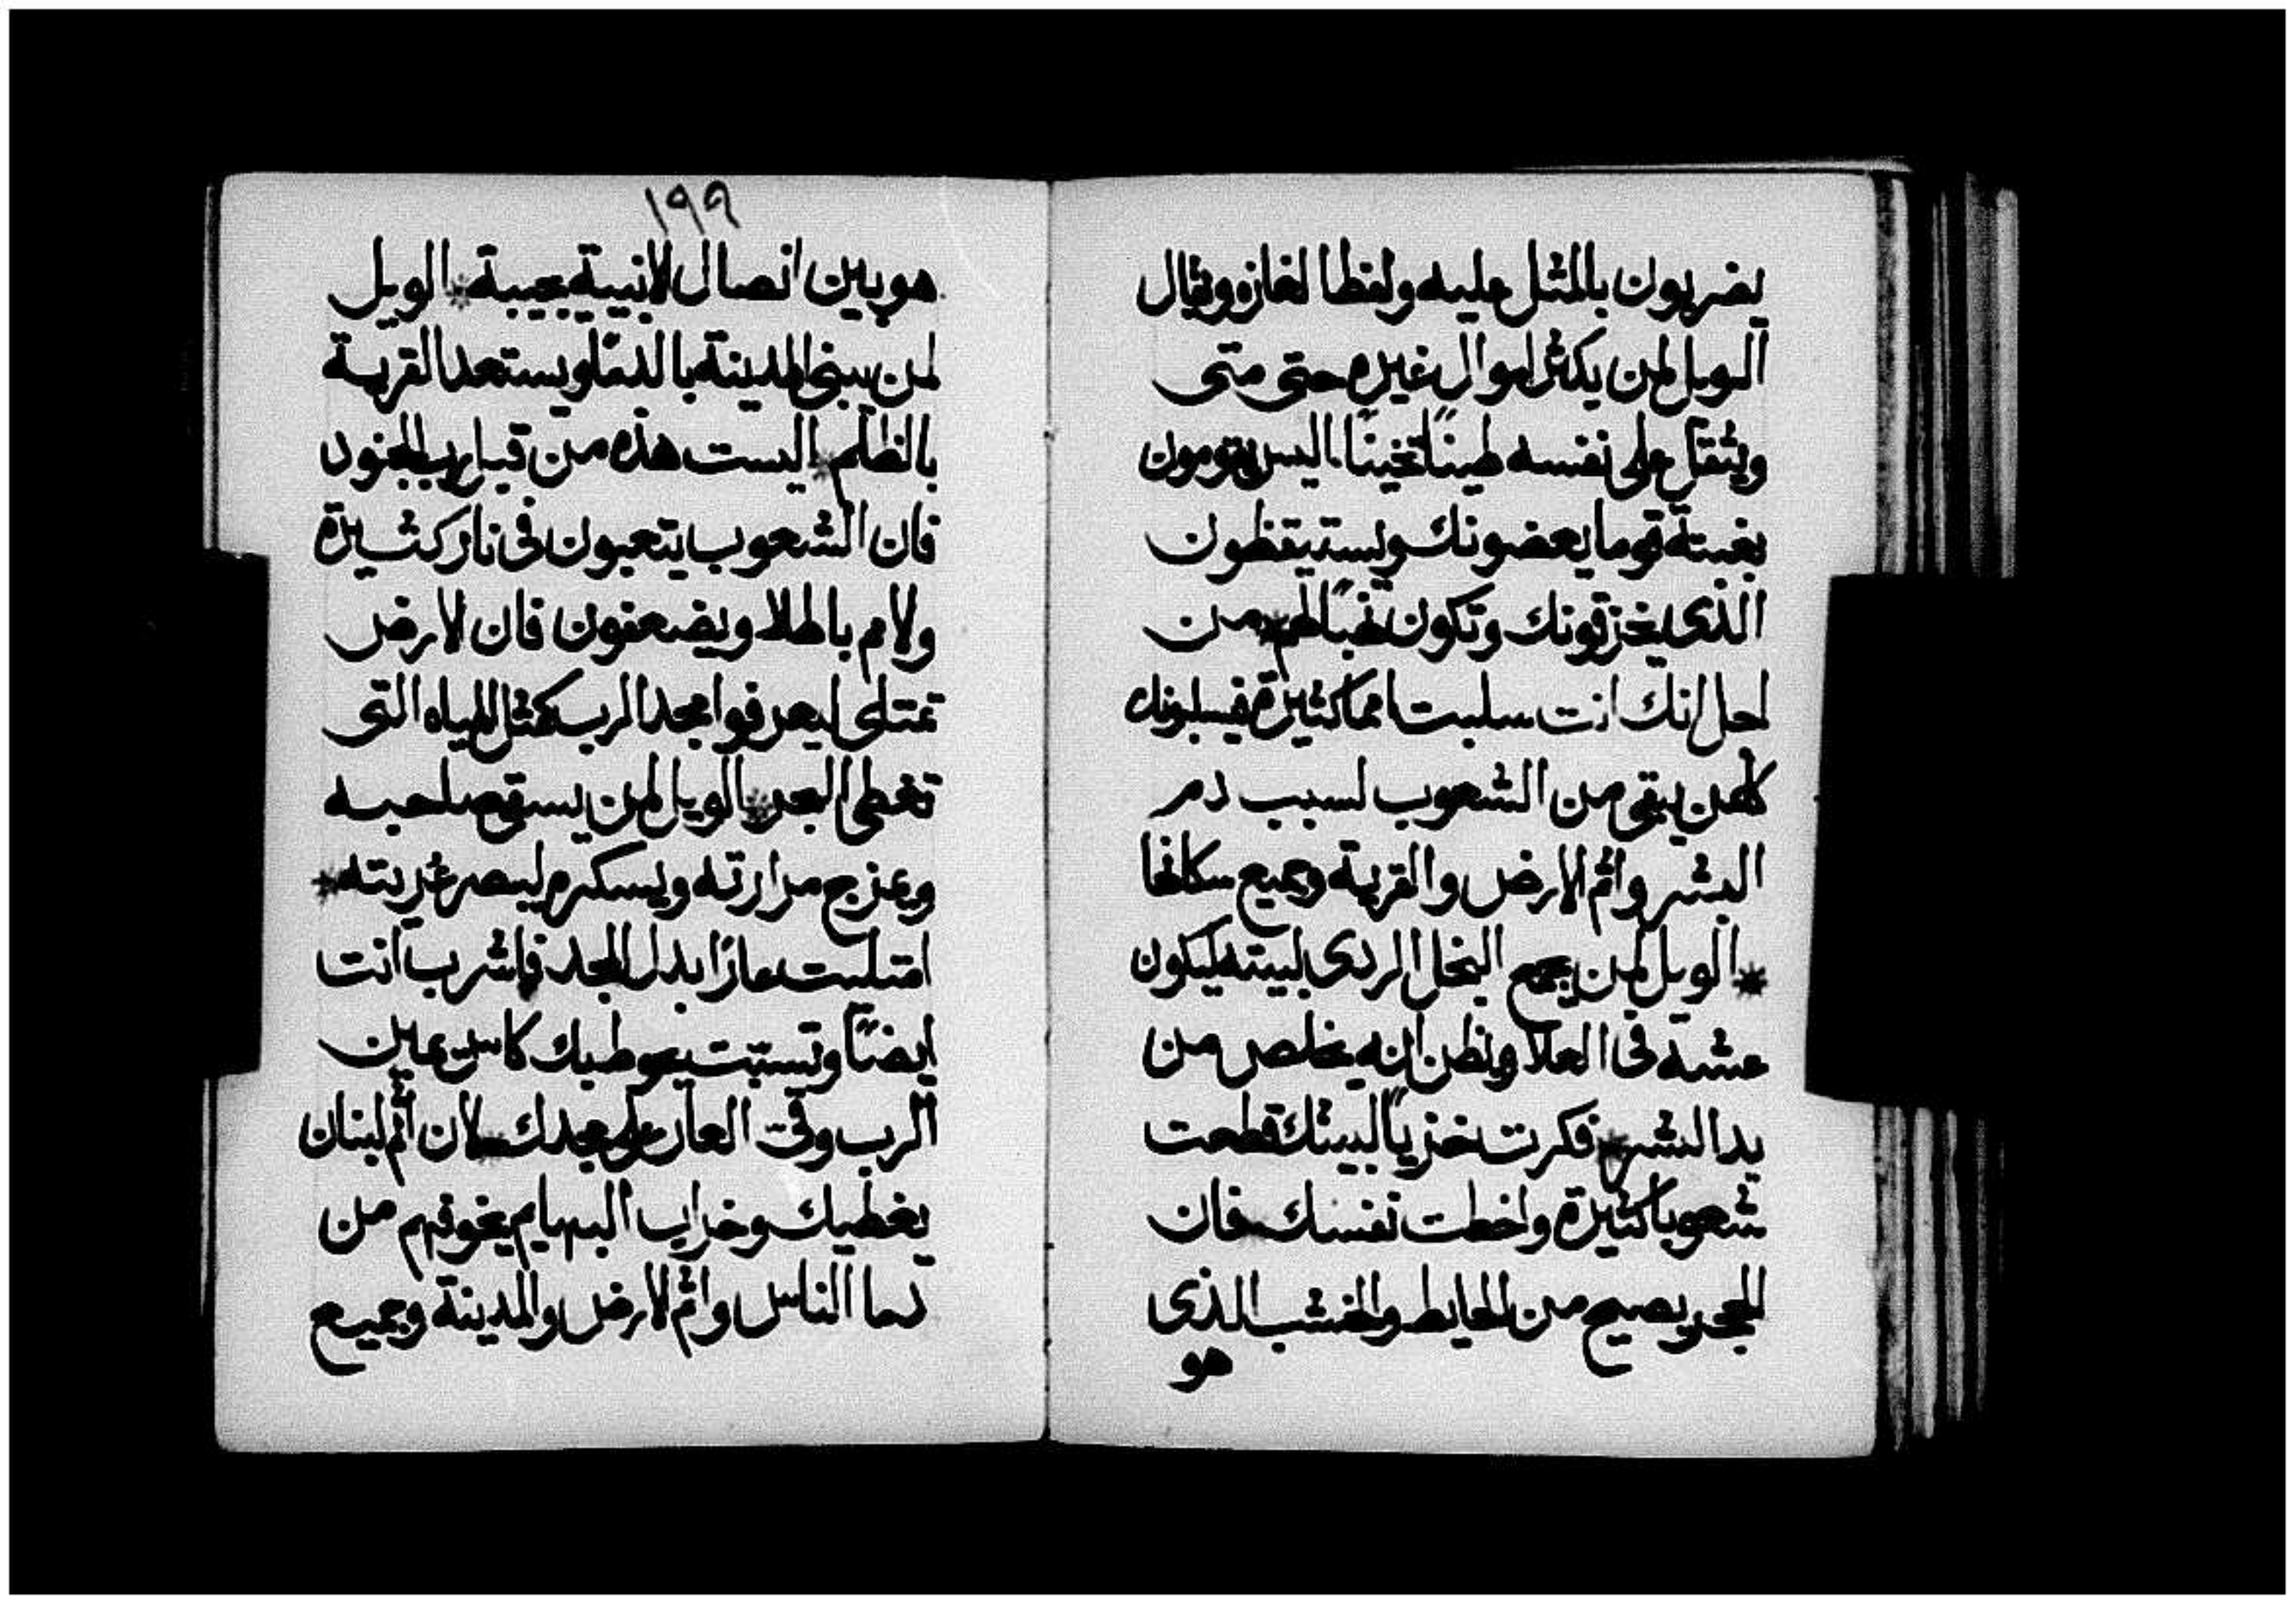 يضربون بالمثل عليه ولفظا لغازه ويقال
الويل لمن يكثر اموال غيره حتى متى
ويثقل على نفسه طينًا تخينًا اليس يقومون
بغتة قوما يعضونك ويستيقظون
الذى يخزقونك وتكون نهبًا لهم * من
اجل انك انت سلبت امما كثيرة فيسلبونك
كلمن يبقى من الشعوب لسبب دم
البشر واثم الارض والقرية وجميع سكانها
* الويل لمن يجمع البخل الردى لبيته ليكون
عشه فى العلا ويظن انه يخلص من
يد الشر * فكرت خزيًا لبيتك قطعت
شعوبا كثيرة واخطت نفسك * فان
الحجر يصيح من الحايط والخشب الذى
هو
١٩٩
هو بين اتصال الابنية يجيبة * الويل
لمن يبنى المدينة بالدما ويستعد القرية
بالظلم * اليست هذه من قبل رب الجنود
فان الشعوب يتعبون فى نار كثيرة
والامم باطلا ويضعفون فان الارض
تمتلى ليعرفوا مجد الرب كمثل المياه التى
تغطى البحر * الويل لمن يسقى صاحبه
ويمزج مرارته ويسكره ليبصر عريته *
امتليت عارًا بدل المجد فاشرب انت
ايضًا وتسبت يحوطيك كاس يمين
الرب وقى العار على مجدك * لان اثم لبنان
يغطيك وخراب البهايم يخوفهم من
دما الناس واثم الارض والمدينة وجميع